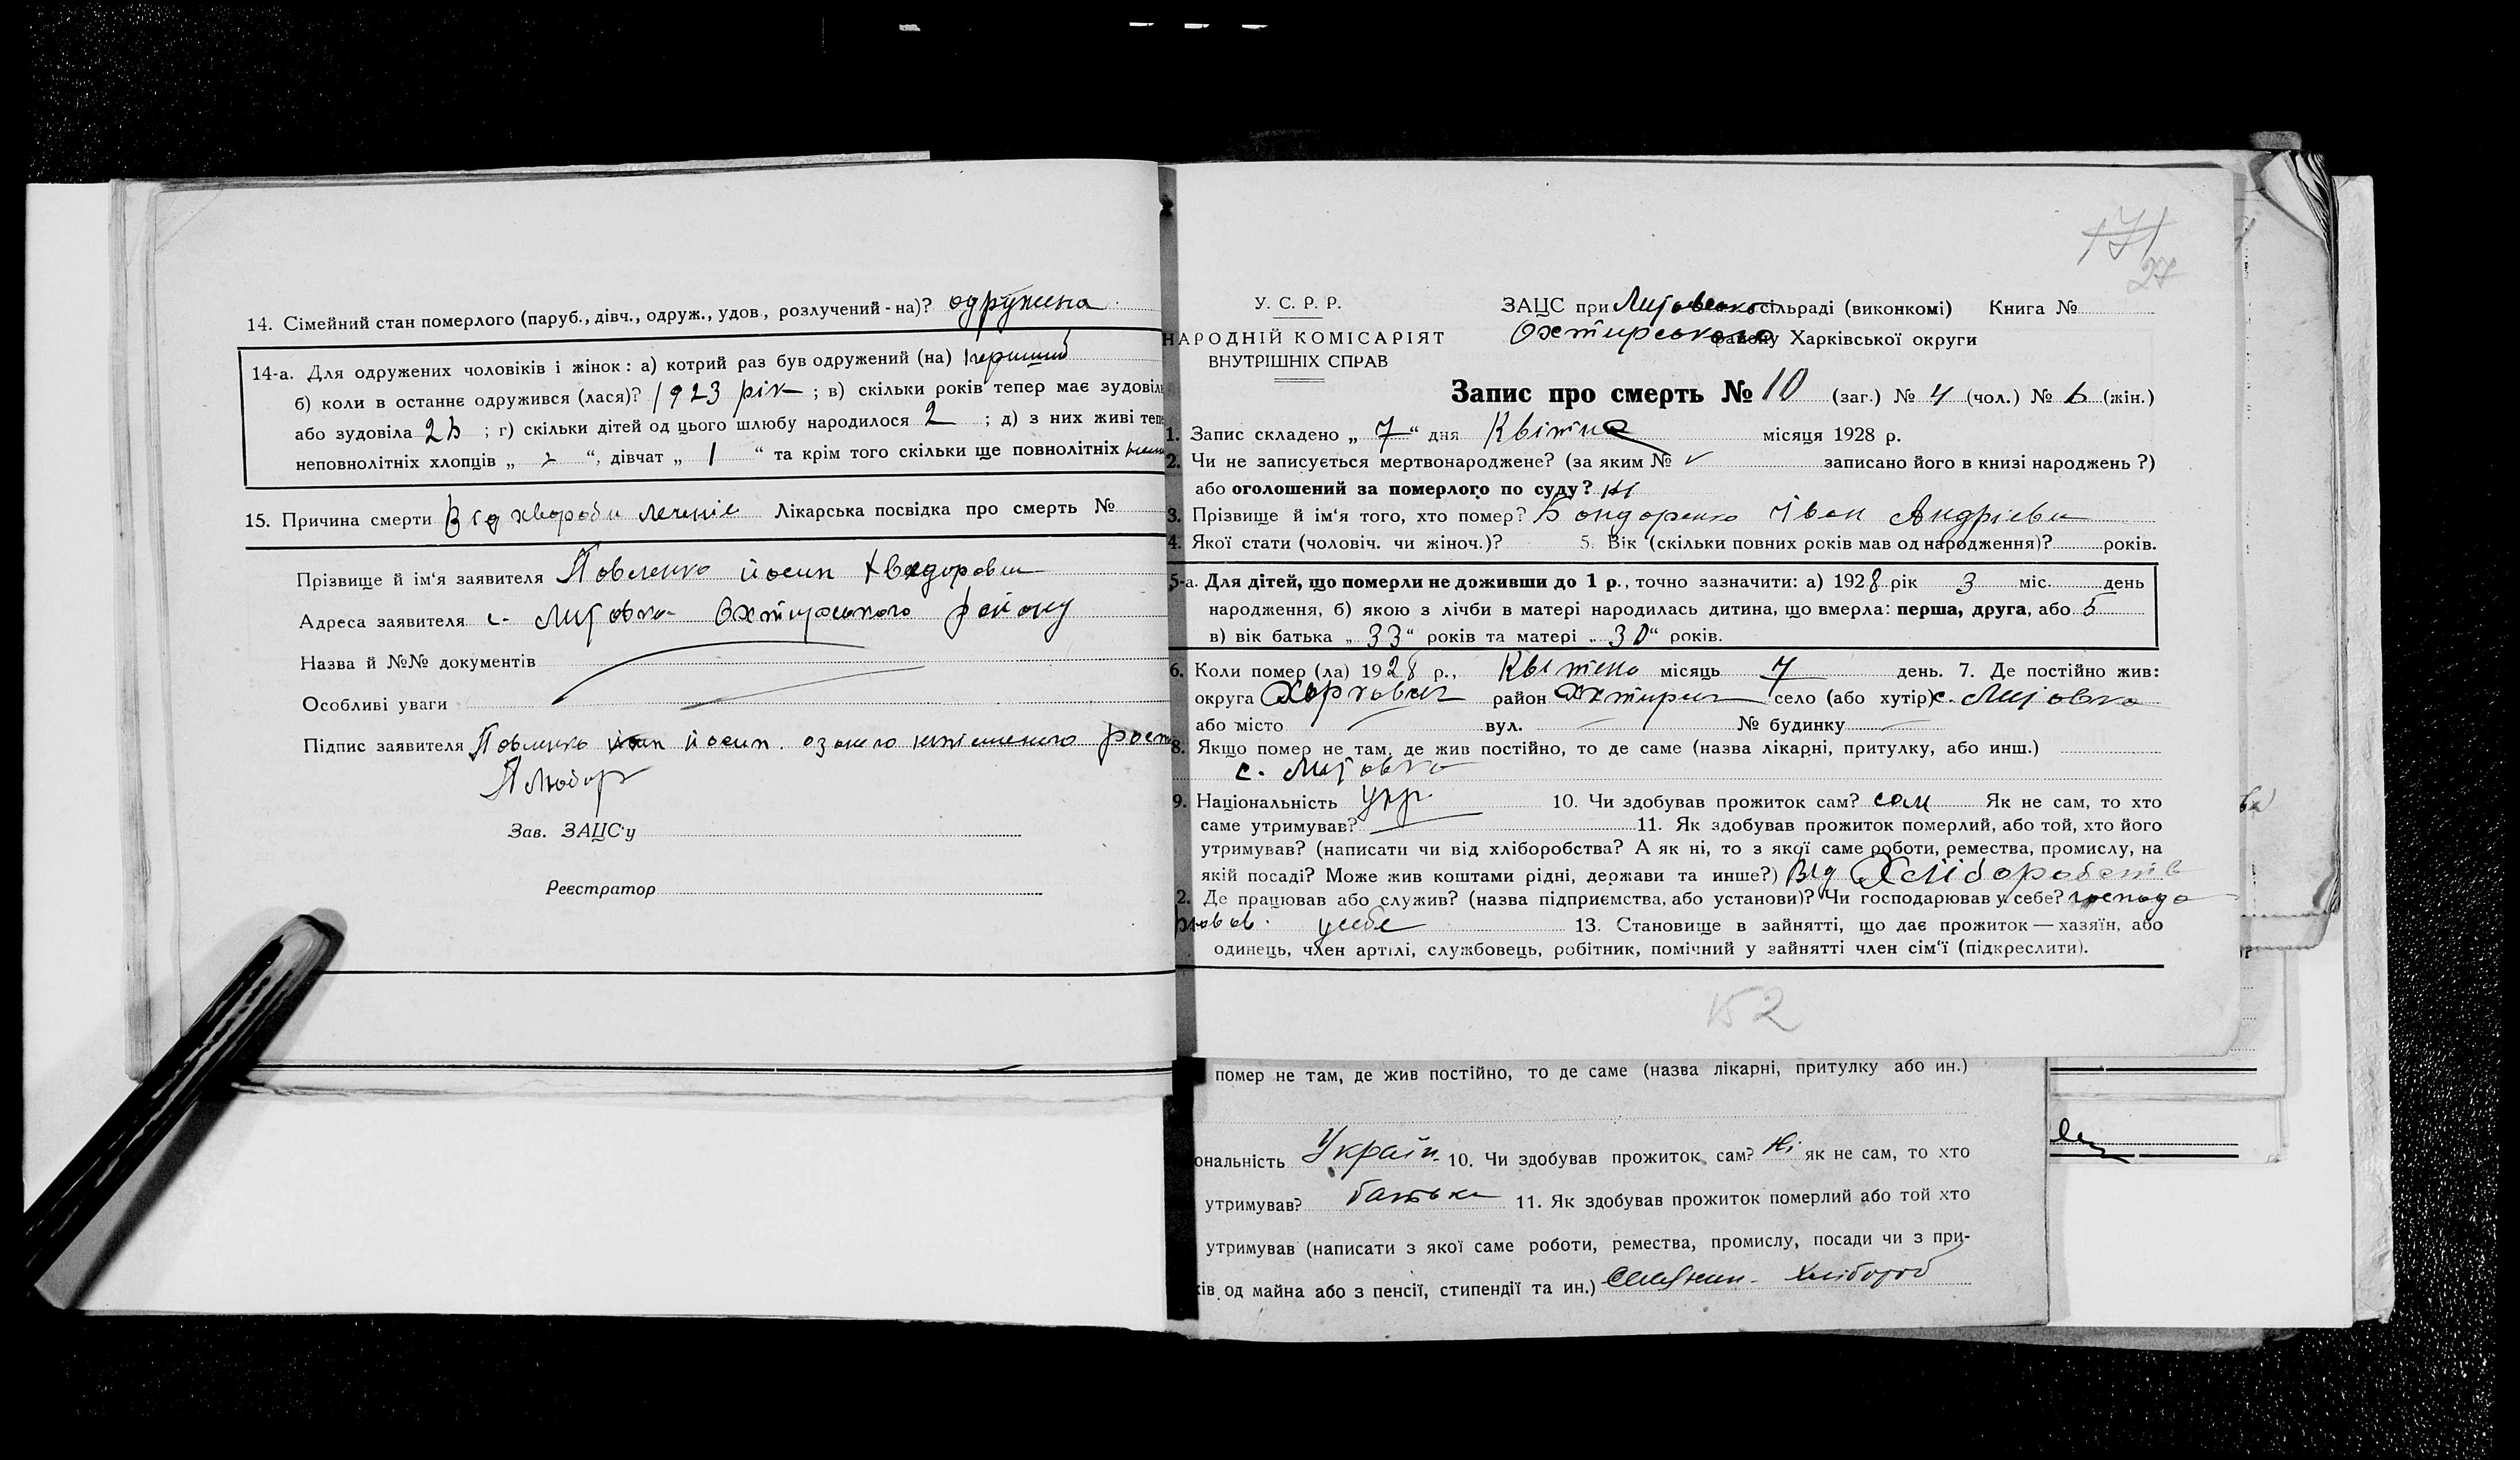 14. Сімейний стан померлого (паруб., дівч., одруж., удов., розлучений-на)? одружена
14-а. Для одружених чоловіків і жінок: а) котрий раз був одружений (на) перший
б) коли в останнє одружився (лася)? 1923 рік ; в) скільки років тепер має зудовіл
або зудовіла 25 ; г) скільки дітей од цього шлюбу народилося 2 ; д) з них живі теп
неповнолітніх хлопців „ “, дівчат „ 1 “ та крім того скільки ще повнолітніх
15. Причина смерти Від хвороби Лікарська посвідка про смерть №
Прізвище й ім'я заявителя Павленко йосип
Адреса заявителя с. Литовка Охтирського району
Назва й №№ документів
Особливі уваги
Підпис заявителя Павленко йосип
Зав. ЗАЦС'у
Реєстратор
171
27
У. С. Р. Р.
НАРОДНІЙ КОМІСАРІЯТ
ВНУТРІШНІХ СПРАВ
ЗАЦС при сільраді (виконкомі) Книга №
Охтирського району Харківської округи
Запис про смерть № 10 (заг.) № 4 (чол.) № 6 (жін.)
1. Запис складено „ 7 “ дня Квітня місяця 1928 р.
2. Чи не записується мертвонароджене? (за яким № записано його в книзі народжень?)
або оголошений за померлого по суду? ні
3. Прізвище й ім'я того, хто помер? Бондаренко Іван Андрієви
4. Якої стати (чоловіч. чи жіноч.)? 5. Вік (скільки повних років мав од народження)? років.
5-а. Для дітей, що померли не доживши до 1 р., точно зазначити: а) 1928 рік 3 міс. день
народження, б) якою з лічби в матері народилась дитина, що вмерла: перша, друга, або 5
в) вік батька „ 33 “ років та матері „ 30 “ років.
6. Коли помер (ла) 1928 р., Квітень місяць 7 день. 7. Де постійно жив:
округа район село (або хутір) с. Литовка
або місто вул. № будинку
8. Якщо помер не там, де жив постійно, то де саме (назва лікарні, притулку, або инш.)
с. Литовка
9. Національність Укр 10. Чи здобував прожиток сам? сам Як не сам, то хто
саме утримував? 11. Як здобував прожиток померлий, або той, хто його
утримував? (написати чи від хліборобства? А як ні, то з якої саме роботи, ремества, промислу, на
якій посаді? Може жив коштами рідні, держави та инше?) Від Хліборобств
2. Де працював або служив? (назва підприємства, або установи)? Чи господарював у себе? господа
рював у себе 13. Становище в зайнятті, що дає прожиток — хазяїн, або
одинець, член артілі, службовець, робітник, помічний у зайнятті член сім'ї (підкреслити).
152
помер не там, де жив постійно, то де саме (назва лікарні, притулку або ин.)
ональність Україн. 10. Чи здобував прожиток сам? Ні як не сам, то хто
утримував? батько 11. Як здобував прожиток померлий або той хто
утримував (написати з якої саме роботи, ремества, промислу, посади чи з при-
ків од майна або з пенсії, стипендії та ин.) Селянин - Хлібороб